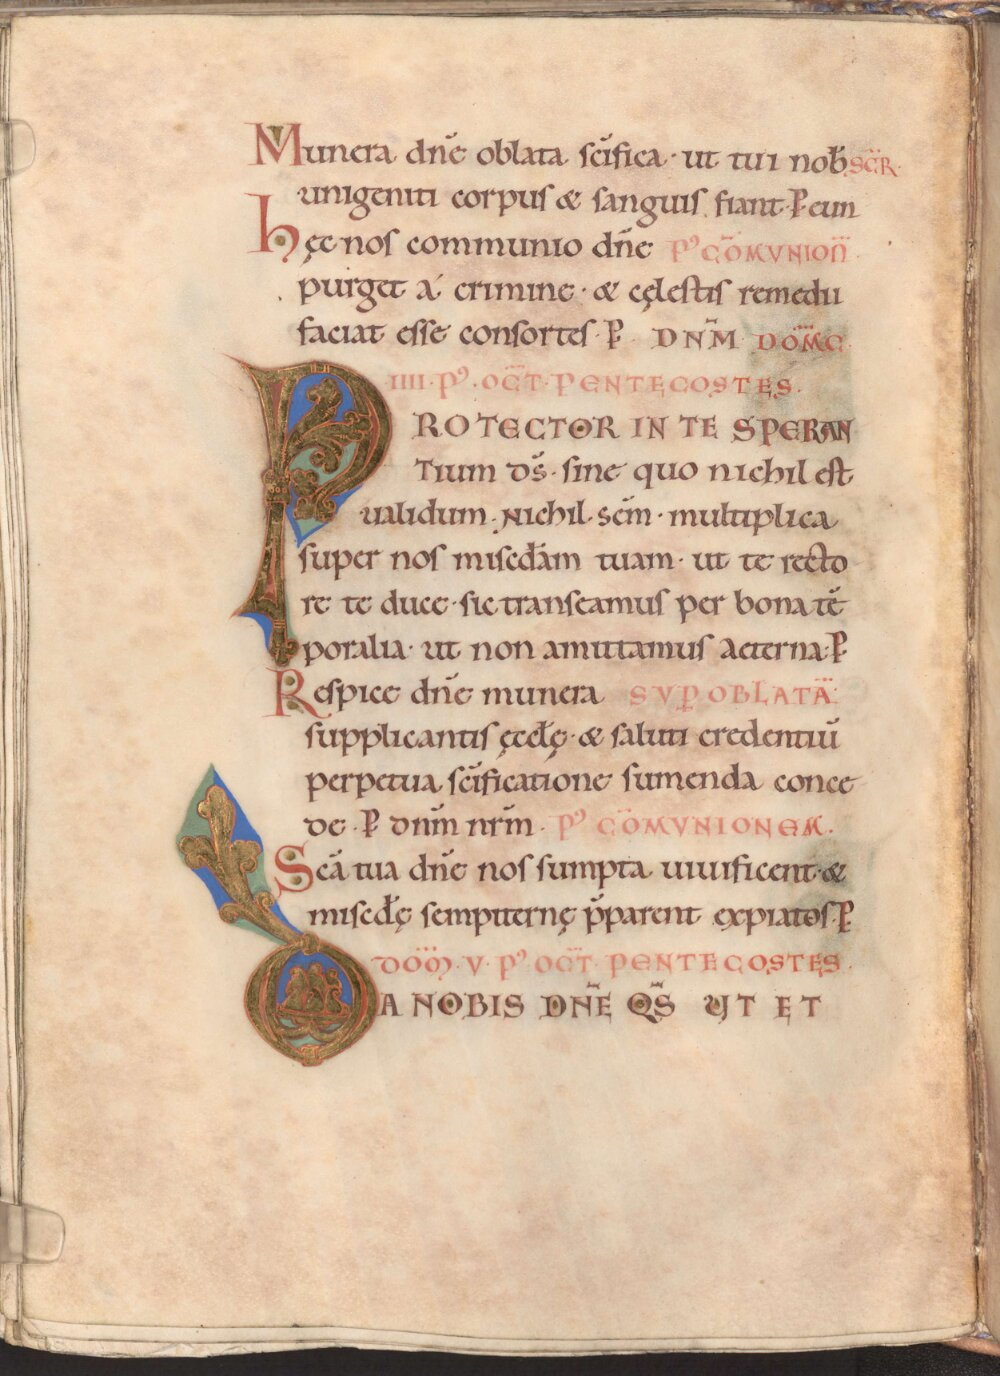 Munera dn̄e oblata sc̄ifica · ut tui nob̄ SCR̄
unigeniti corpus & sanguis fiant · P̲ eun
hęc nos communio dn̄e P' CŌMVNION̄
purget a crimine · & cęlestis remedii
faciat esse consortes · P̲ DNM̄ DOM̄C
IIII · P' · OCT̄ · PENTECOSTES ·
PROTECTOR IN TE SPERAN
Tium ds̄ · sine quo nichil est
ualidum · nichil sc̄m · multiplica
super nos misc̄dam tuam · ut te recto
re te duce · sic transeamus per bona tē
poralia · ut non amittamus aeterna · P̲
Respice dn̄e munera SVP̲ OBLATĀ
supplicantis ęccl̄ę · & saluti credentiū
perpetua sc̄ificatione sumenda conce
de · P̲ dnm̄ nrm̄ · P' CŌMVNIONEM ·
Sc̄a tua dn̄e nos sumpta uiuificent · &
misc̄dę sempiternę p̄parent expiatos · P̲
DOM̄ · V · P' OCT̄ · PENTECOSTES ·
DA NOBIS DN̄E QS̄ UT ET